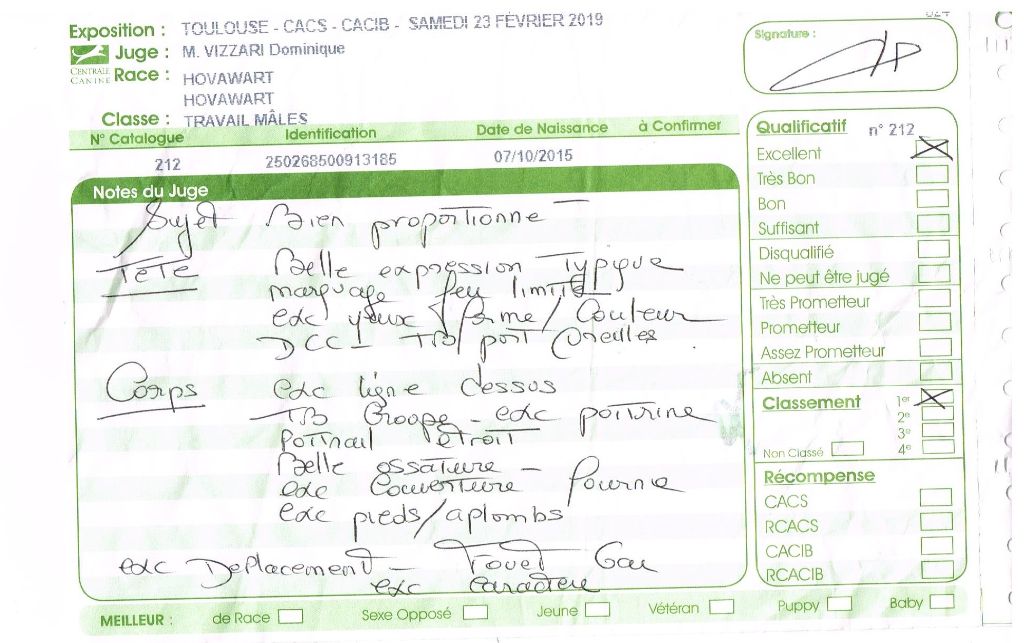 Exposition : TOULOUSE - CACS - CACIB - SAMEDI 23 FÉVRIER 2019
Juge : M. VIZZARI Dominique
CENTRALE CANINE
Race : HOVAWART
HOVAWART
Classe : TRAVAIL MÂLES
N° Catalogue Identification Date de Naissance à Confirmer
212 250268500913185 07/10/2015
Notes du Juge
Sujet Bien proportionné
Tête Belle expression Typique
marquage feu limité
exc yeux forme/Couleur
DCC1 TB port Oreilles
Corps exc ligne dessus
TB Croupe - exc poitrine
Poitrail étroit
Belle ossature -
exc Couverture Fournie
exc pieds/aplombs
exc Deplacement - Fouet Gai
exc caractère
Signature :
Qualificatif n° 212
Excellent
Très Bon
Bon
Suffisant
Disqualifié
Ne peut être jugé
Très Prometteur
Prometteur
Assez Prometteur
Absent
Classement 1er
2e
3e
Non Classé 4e
Récompense
CACS
RCACS
CACIB
RCACIB
MEILLEUR : de Race Sexe Opposé Jeune Vétéran Puppy Baby